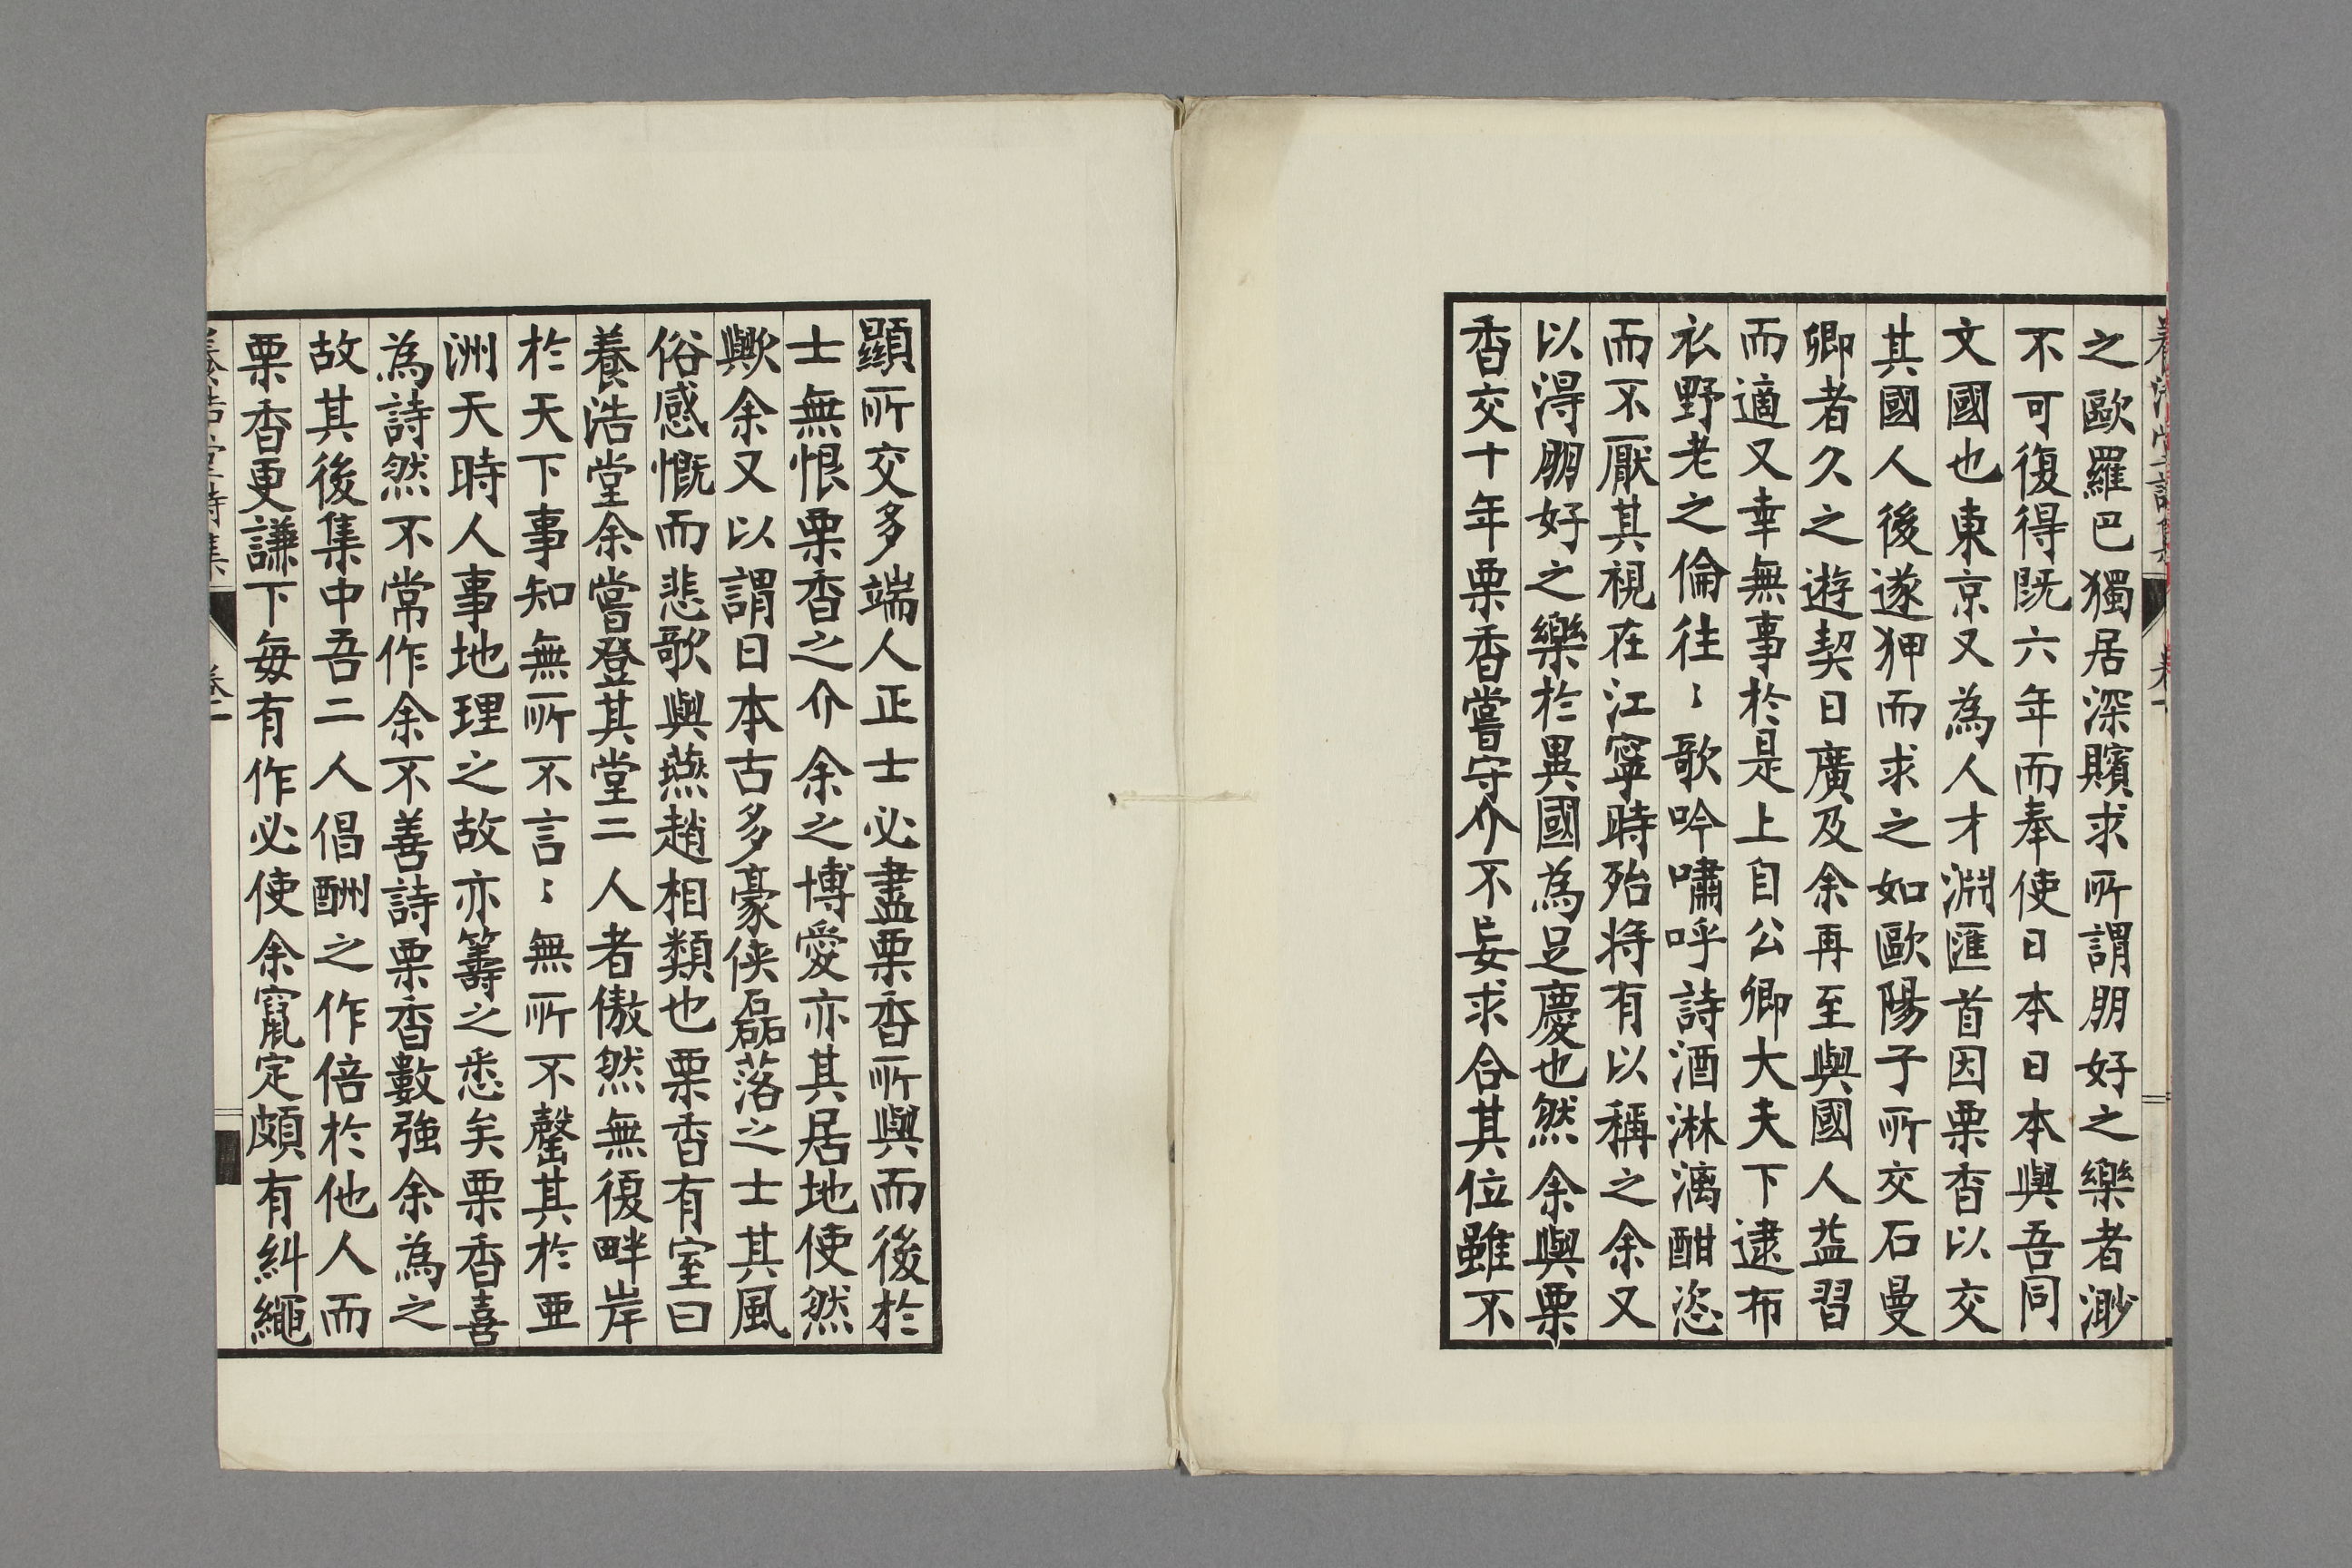 之歐羅巴獨居深矉求所謂朋好之樂者渺
不可復得既六年而奉使日本日本與吾同
文國也東京又為人才淵匯首因栗香以交
其國人後遂狎而求之如歐陽子所交石曼
卿者久之遊契日廣及余再至與國人益習
而適又幸無事於是上自公卿大夫下逮布
衣野老之倫往〻歌吟嘯呼詩酒淋漓酣恣
而不厭其視在江寧時殆将有以稱之余又
以淂朋好之樂於異國為足慶也然余與栗
香交十年栗香嘗守介不妄求合其位雖不
顯所交多端人正士必盡栗香所與而後於
士無恨栗香之介余之博愛亦其居地使然
歟余又以謂日本古多豪侠磊落之士其風
俗感慨而悲歌與燕趙相類也栗香有室曰
養浩堂余嘗登其堂二人者傲然無復畔岸
於天下事知無所不言〻無所不罄其於亜
洲天時人事地理之故亦籌之悉矣栗香喜
為詩然不常作余不善詩栗香數強余為之
故其後集中吾二人倡酬之作倍於他人而
栗香更謙下每有作必使余竄定頗有糾繩
養浩堂詩集 卷二